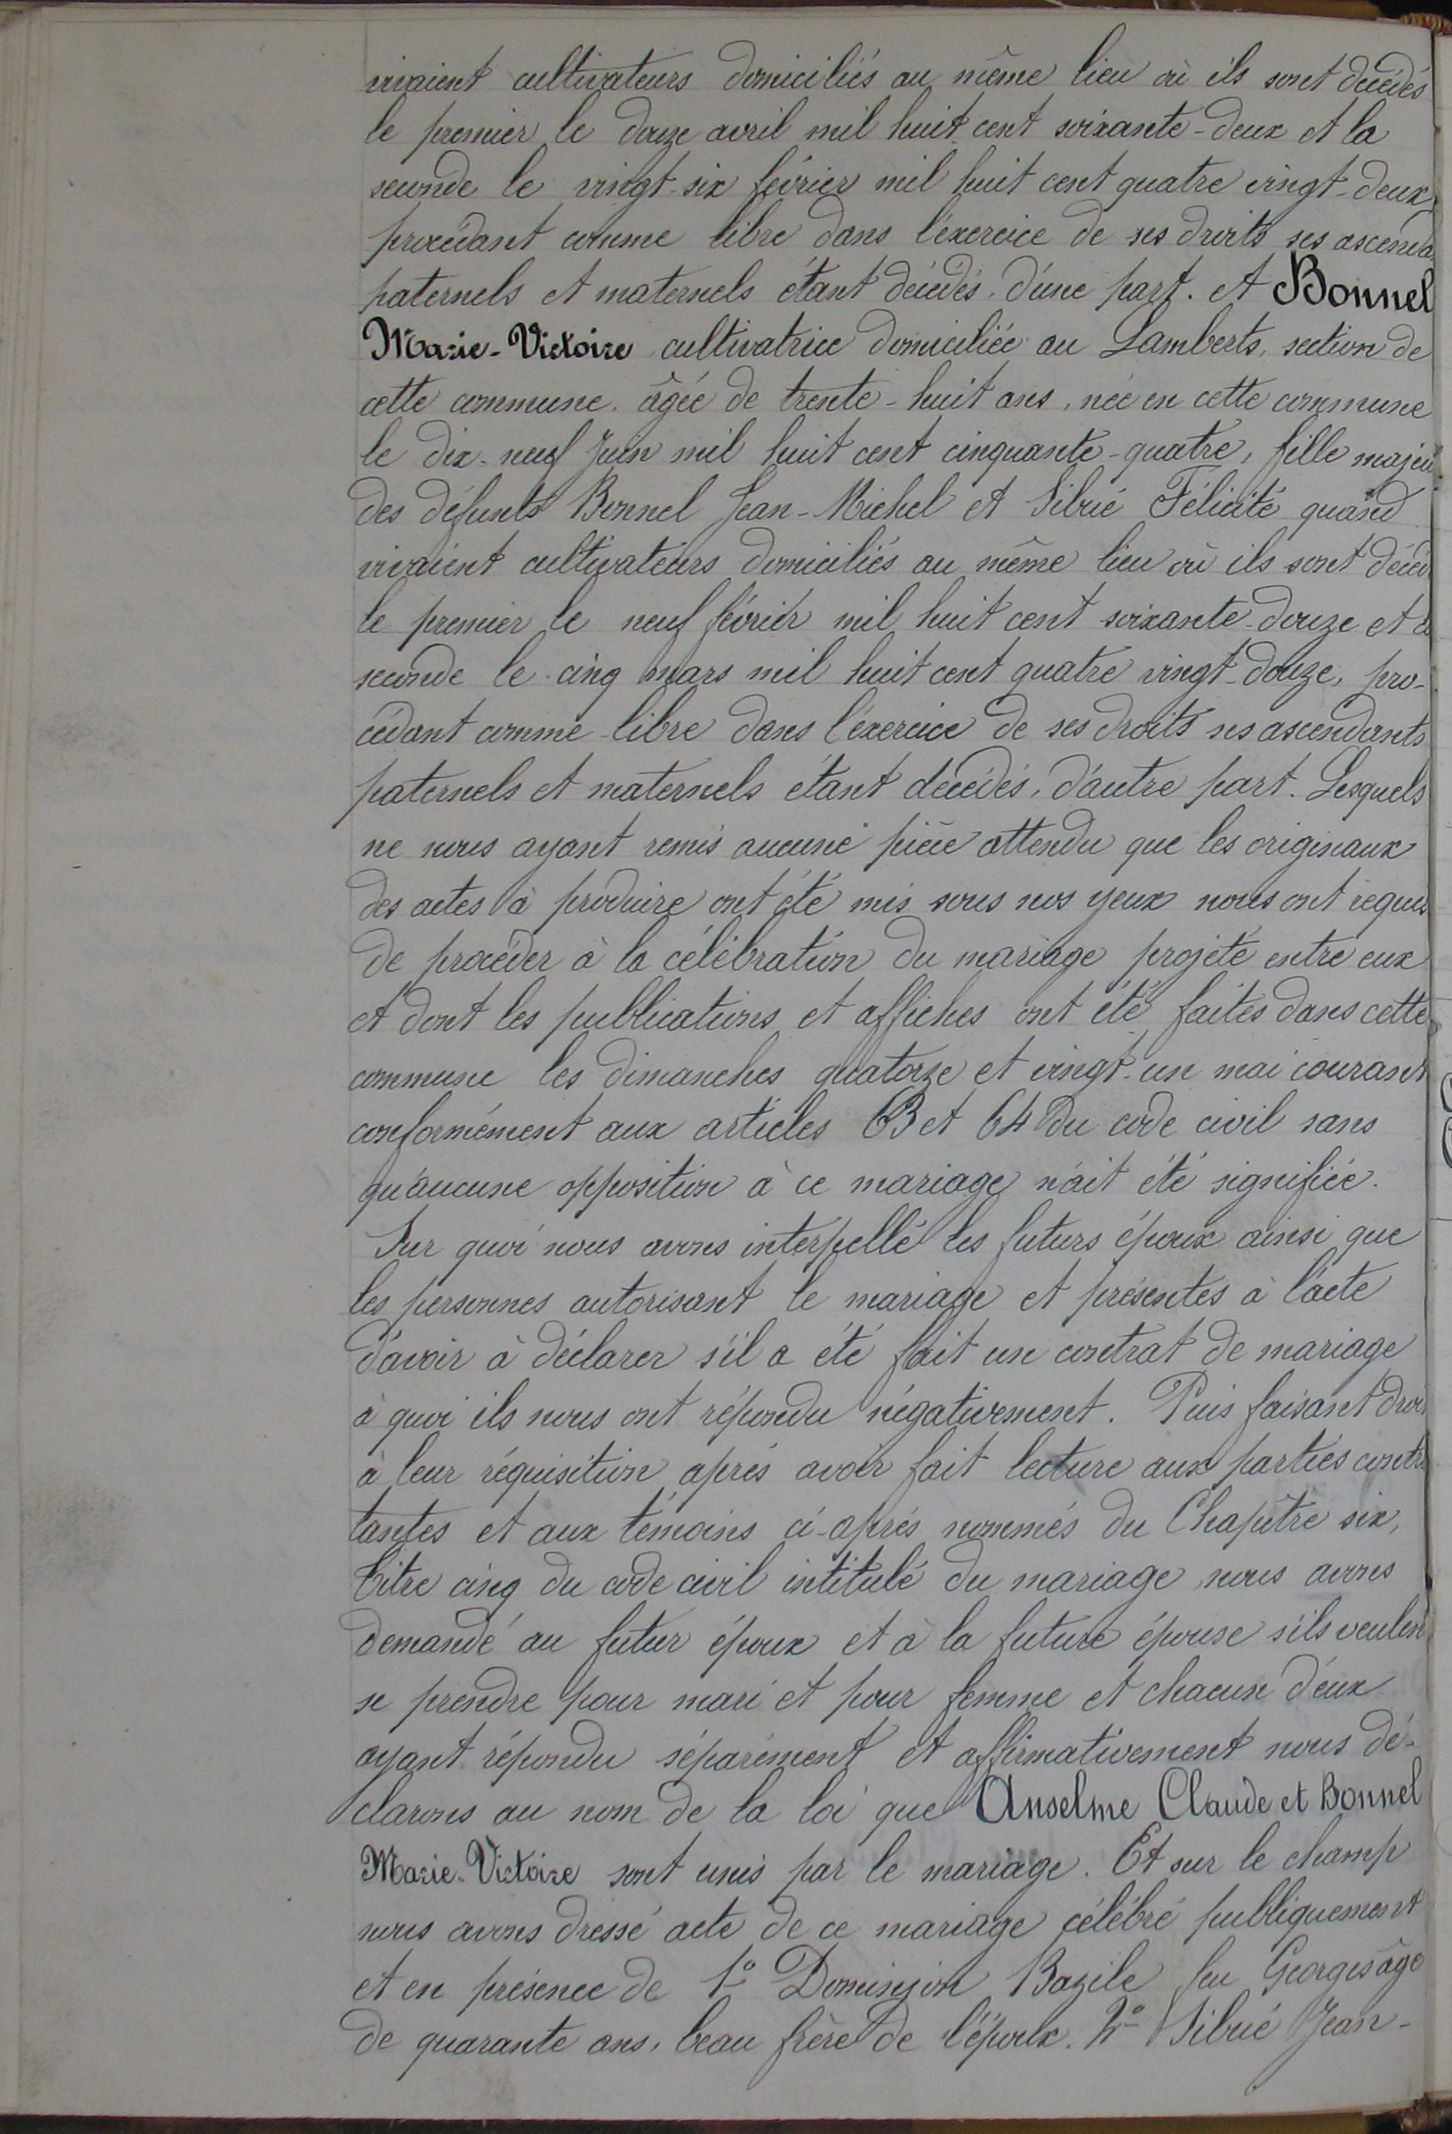 vivaient cultivateurs domiciliés au même lieu où ils sont décédés
le premier le douze avril mil huit cent soixante-deux et la
seconde le vingt-six février mil huit cent quatre vingt-deux,
procédant comme libre dans l'exercice de ses droits ses ascenda
paternels et maternels étant décédés. d'une part. et Bonnel
Marie-Victoire cultivatrice domiciliée au Lamberts, section de
cette commune. âgée de trente-huit ans, née en cette commune
le dix-neuf Juin mil huit cent cinquante-quatre, fille majeu
des défunts Bonnel Jean-Michel et Silvié Félicité quand
vivaient cultivateurs domiciliés au même lieu où ils sont décéd
le premier le neuf février mil huit cent soixante-douze et
seconde le cinq mars mil huit cent quatre vingt-douze, pro-
cédant comme libre dans l'exercice de ses droits ses ascendants
paternels et maternels étant décédés, d'autre part. Lesquels
ne nous ayant remis aucune pièce attendu que les originaux
des actes à produire ont été mis sous nos yeux nous ont requis
de procéder à la célébration du mariage projeté entre eux
et dont les publications et affiches ont été faites dans cette
commune les dimanches quatorze et vingt-un mai courant
conformément aux articles 63 et 64 du code civil sans
qu'aucune opposition à ce mariage n'ait été signifiée.
Sur quoi nous avons interpellé les futurs époux ainsi que
les personnes autorisant le mariage et présentes à l'acte
d'avoir à déclarer s'il a été fait un contrat de mariage
à quoi ils nous ont répondu négativement. Puis faisant droi
à leur réquisition après avoir fait lecture aux parties contr
tantes et aux témoins ci-après nommés du Chapitre six,
titre cinq du code civil intitulé du mariage, nous avons
demandé au futur époux et à la future épouse s'ils veulen
se prendre pour mari et pour femme et chacun d'eux
ayant répondu séparément et affirmativement nous dé-
clarons au nom de la loi que Anselme Claude et Bonnel
Marie-Victoire sont unis par le mariage. Et sur le champ
nous avons dressé acte de ce mariage célébré publiquement
et en présence de 1° Dominjon Bazile feu Georges âgé
de quarante ans, beau frère de l'époux. 2° Silvié Jean-